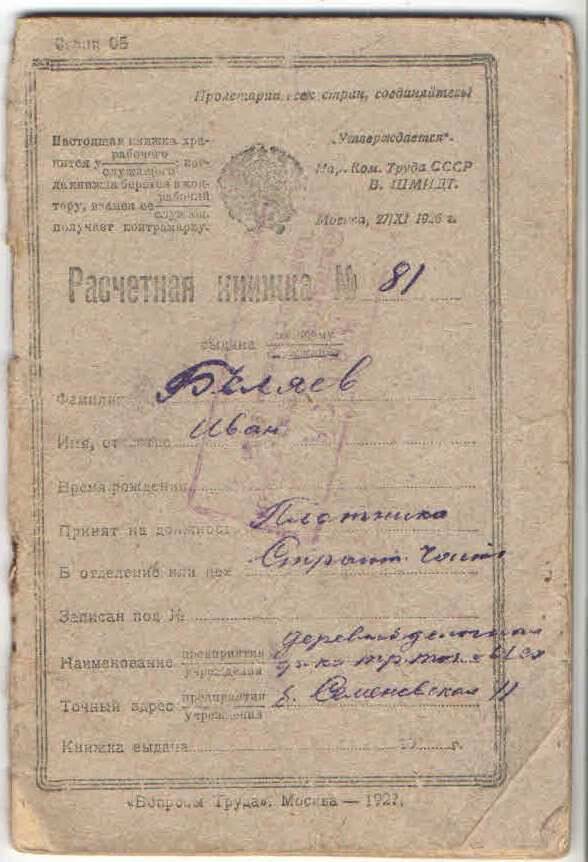 Пролетарии всех стран, соединяйтесь!
Настоящая книжка хра-
нится у рабочего
служащего; ког-
да книжка берется в кон-
тору, взамен ее рабочий
служащ.
получает контрамарку.
„Утверждается“.
Нар. Ком. Труда СССР
В. ШМИДТ.
Москва, 27/XI 1926 г.
Расчетная книжка № 81
выдана рабочему
служащему
Фамилия Бѣляев
Имя, отчество Иван
Время рождения
Принят на должность Плотника
В отделение или цех Строит. Части
Записан под №
Наименование предприятия
учреждения
Точный адрес предприятия
учреждения Семеновская 11
Книжка выдана г.
«Вопросы Труда». Москва — 1927.